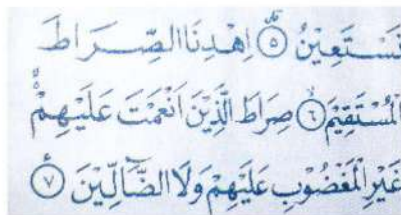 نَسْتَعِيْنُ ۝٥ اِهْدِنَا الصِّرَاطَ
الْمُسْتَقِيْمَ ۝٦ صِرَاطَ الَّذِيْنَ اَنْعَمْتَ عَلَيْهِمْ
غَيْرِ الْمَغْضُوْبِ عَلَيْهِمْ وَلَا الضَّآلِّيْنَ ۝٧